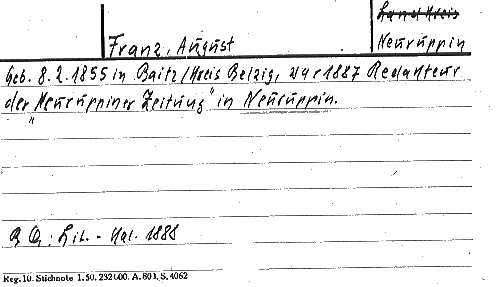 Landkreis
Franz, August Neuruppin
Geb. 8.2.1855 in Baitz/Kreis Belzig, war 1887 Redakteur
der "Neuruppiner Zeitung" in Neuruppin.
BQ: Lit.-Kal. 1888
Reg. 10. Stichnote 1. 50. 232000. A. 803. S. 4062